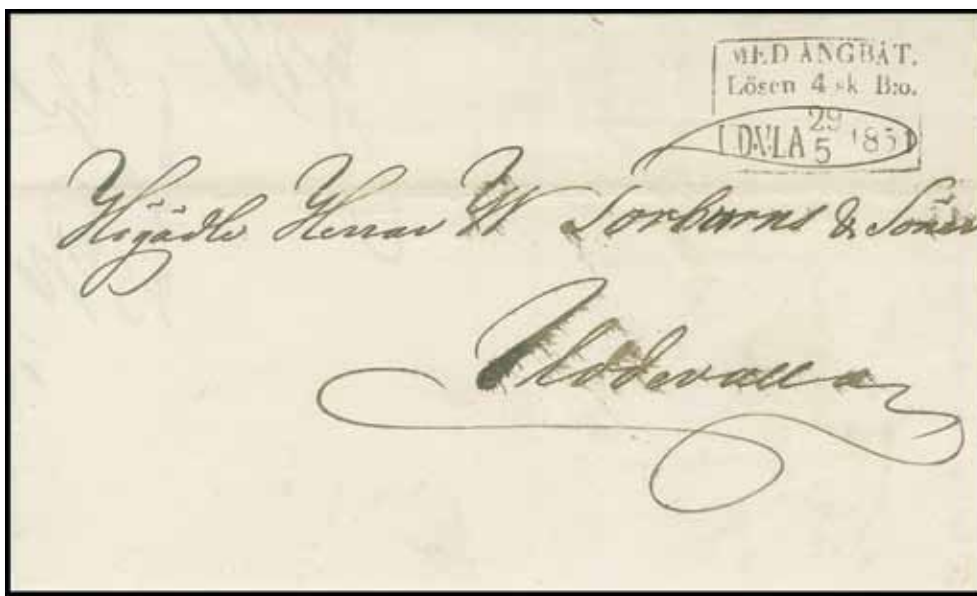 MED ÅNGBÅT.
Lösen 4 sk B:o.
29
5 1851
Högädle Herrar W Torburns & Söner
Uddevalla